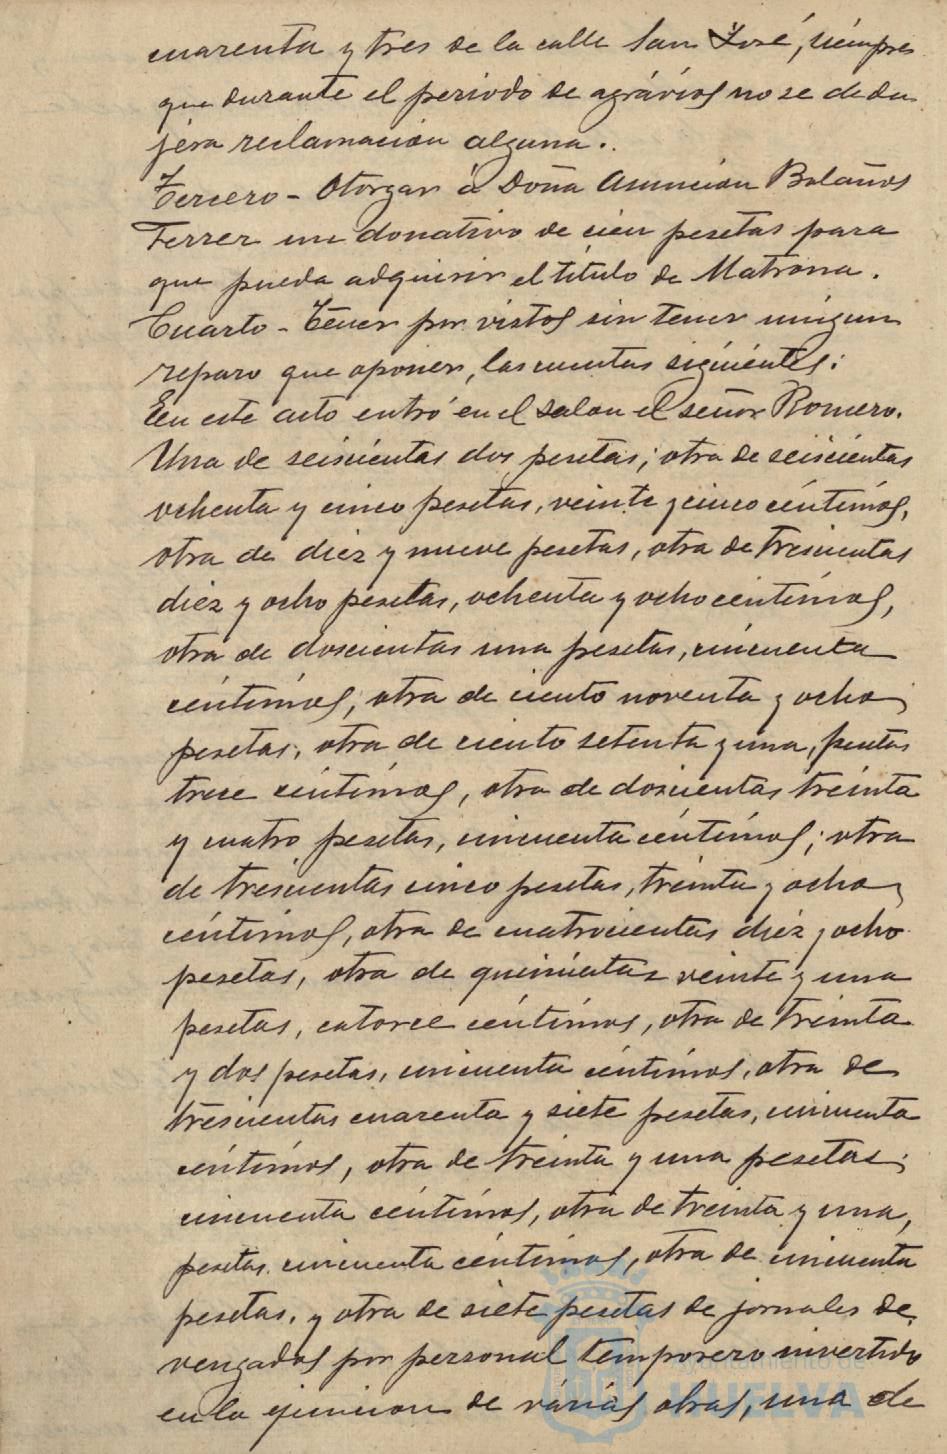 cuarenta y tres de la calle San José, siempre
que durante el periodo de agrávios no se dedu
jera reclamación alguna.
Tercero - Otorgar á Doña Asunción Bolaños
Ferrer un donativo de cien pesetas para
que pueda adquirir el título de Matrona.
Cuarto - Tener por vistos sin tener ningun
reparo que oponer, las cuentas siguientes:
En este acto entró en el salon el señor Romero.
Una de seiscientas dos pesetas; otra de seiscientas
ochenta y cinco pesetas, veinte y cinco céntimos,
otra de diez y nueve pesetas, otra de trescientas
diez y ocho pesetas, ochenta y ocho centímos,
otra de doscientas una pesetas, cincuenta
céntimos; otra de ciento noventa y ocho
pesetas; otra de ciento setenta y una, pesetas
trece céntimos, otra de doscientas treinta
y cuatro pesetas, cincuenta céntimos; otra
de trescientas cinco pesetas, treinta y ocho
céntimos, otra de cuatrocientas diez y ocho
pesetas, otra de quinientas veinte y una
pesetas, catorce céntimos, otra de treinta
y dos pesetas, cincuenta céntimos, otra de
trescientas cuarenta y siete pesetas, cincuenta
céntimos, otra de treinta y una pesetas,
cincuenta céntimos, otra de treinta y una,
pesetas cincuenta céntimos, otra de cincuenta
pesetas, y otra de siete pesetas de jornales de
vengados por personal temporero invertido
en la ejecucion de várias obras, una de
Ayuntamiento de
HUELVA